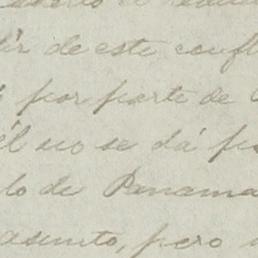 de este conf
por parte de
él no se dá p
lo de Panama
asunto, pero